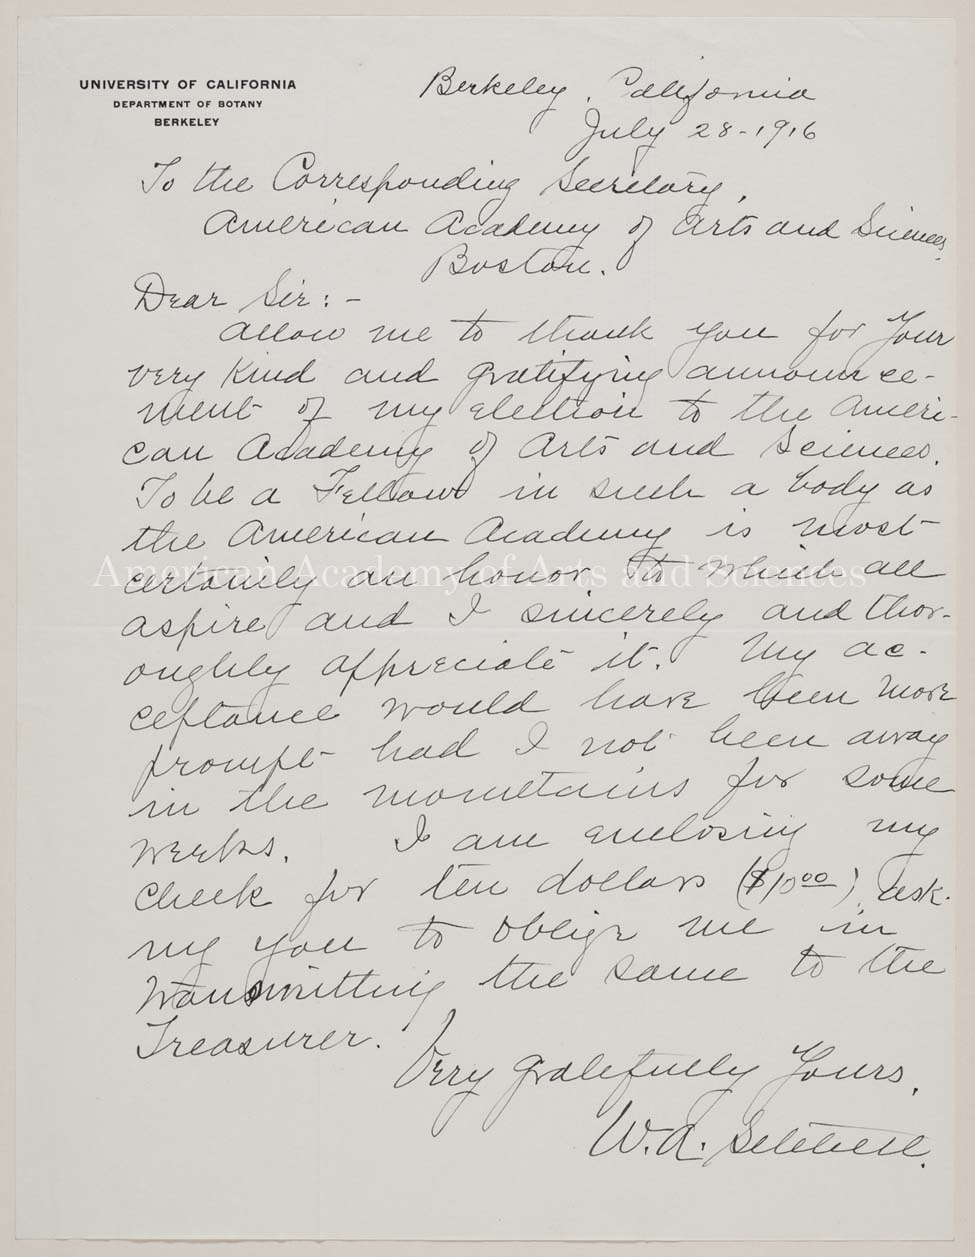 UNIVERSITY OF CALIFORNIA
DEPARTMENT OF BOTANY
BERKELEY
Berkeley, California
July 28-1916
To the Corresponding Secretary,
American Academy of Arts and Sciences,
Boston.
Dear Sir:-
Allow me to thank you for Your
very kind and gratifying announce-
ment of my election to the Ameri-
can Academy of Arts and Sciences.
To be a Fellow in such a body as
the American Academy is most
certainly an honor to which all
American Academy of Arts and Sciences
aspire and I sincerely and thor-
oughly appreciate it. My ac-
ceptance would have been more
prompt had I not been away
in the mountains for some
weeks. I am enclosing my
check for ten dollars ($10.00), ask-
ing you to oblige me in
transmitting the same to the
Treasurer.
Very gratefully Yours,
W.A. Setchell.